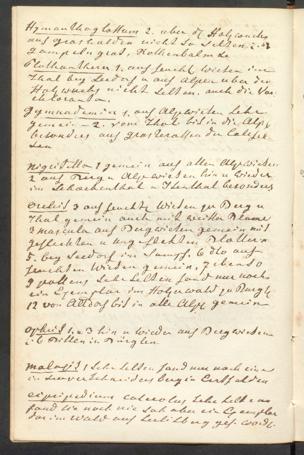 Hymanthoglossum 2. über der Holzwuchs
auf grashalden nicht so selten, z. B.
Gampeln grat, Kolkenbalm
Plathanthera 1, auf feucht wiesen im
Thal bey Seedorf u auf Alpen über der
Holzwuchs nicht selten, auch die Var
chlorantha,
Gymnadenia 1, auf Alpwiesen sehr
gemein – 2, vom Thal bis in die Alp
besonders auf grasterassen der Felsen
Nigritella 1 gemein auf allen Alpwiesen
2 auf Berg u Alpwiesen hin u wieder
im Schächenthal u Isenthal besonders
Orchis 3 auf feuchte Wiesen zu Berg u
Thal gemein auch mit weisser Blume
2 mascula auf Bergwiesen gemein mit
gefleckten u ungefleckten Blättern
5. bey Seedorf im Sumpf. 6 dto auf
feuchten Wiesen gemein, 7 ebenso
9 pallens sehr selten fand nur noch
ein Exemplar im Holzerwald zu Bürgle
12 von Altdorf bis in alle Alpe gemein
Ophris 1, u 3 hin u wieder auf Bergwiesen
in Bürglen
malaxis 1 sehr selten fand nur noch einen
im
cypripedium calceolus sehr selten
fand sie noch nie sah aber ein Exemplar
das im Wald auf Seelisberg gef. word.